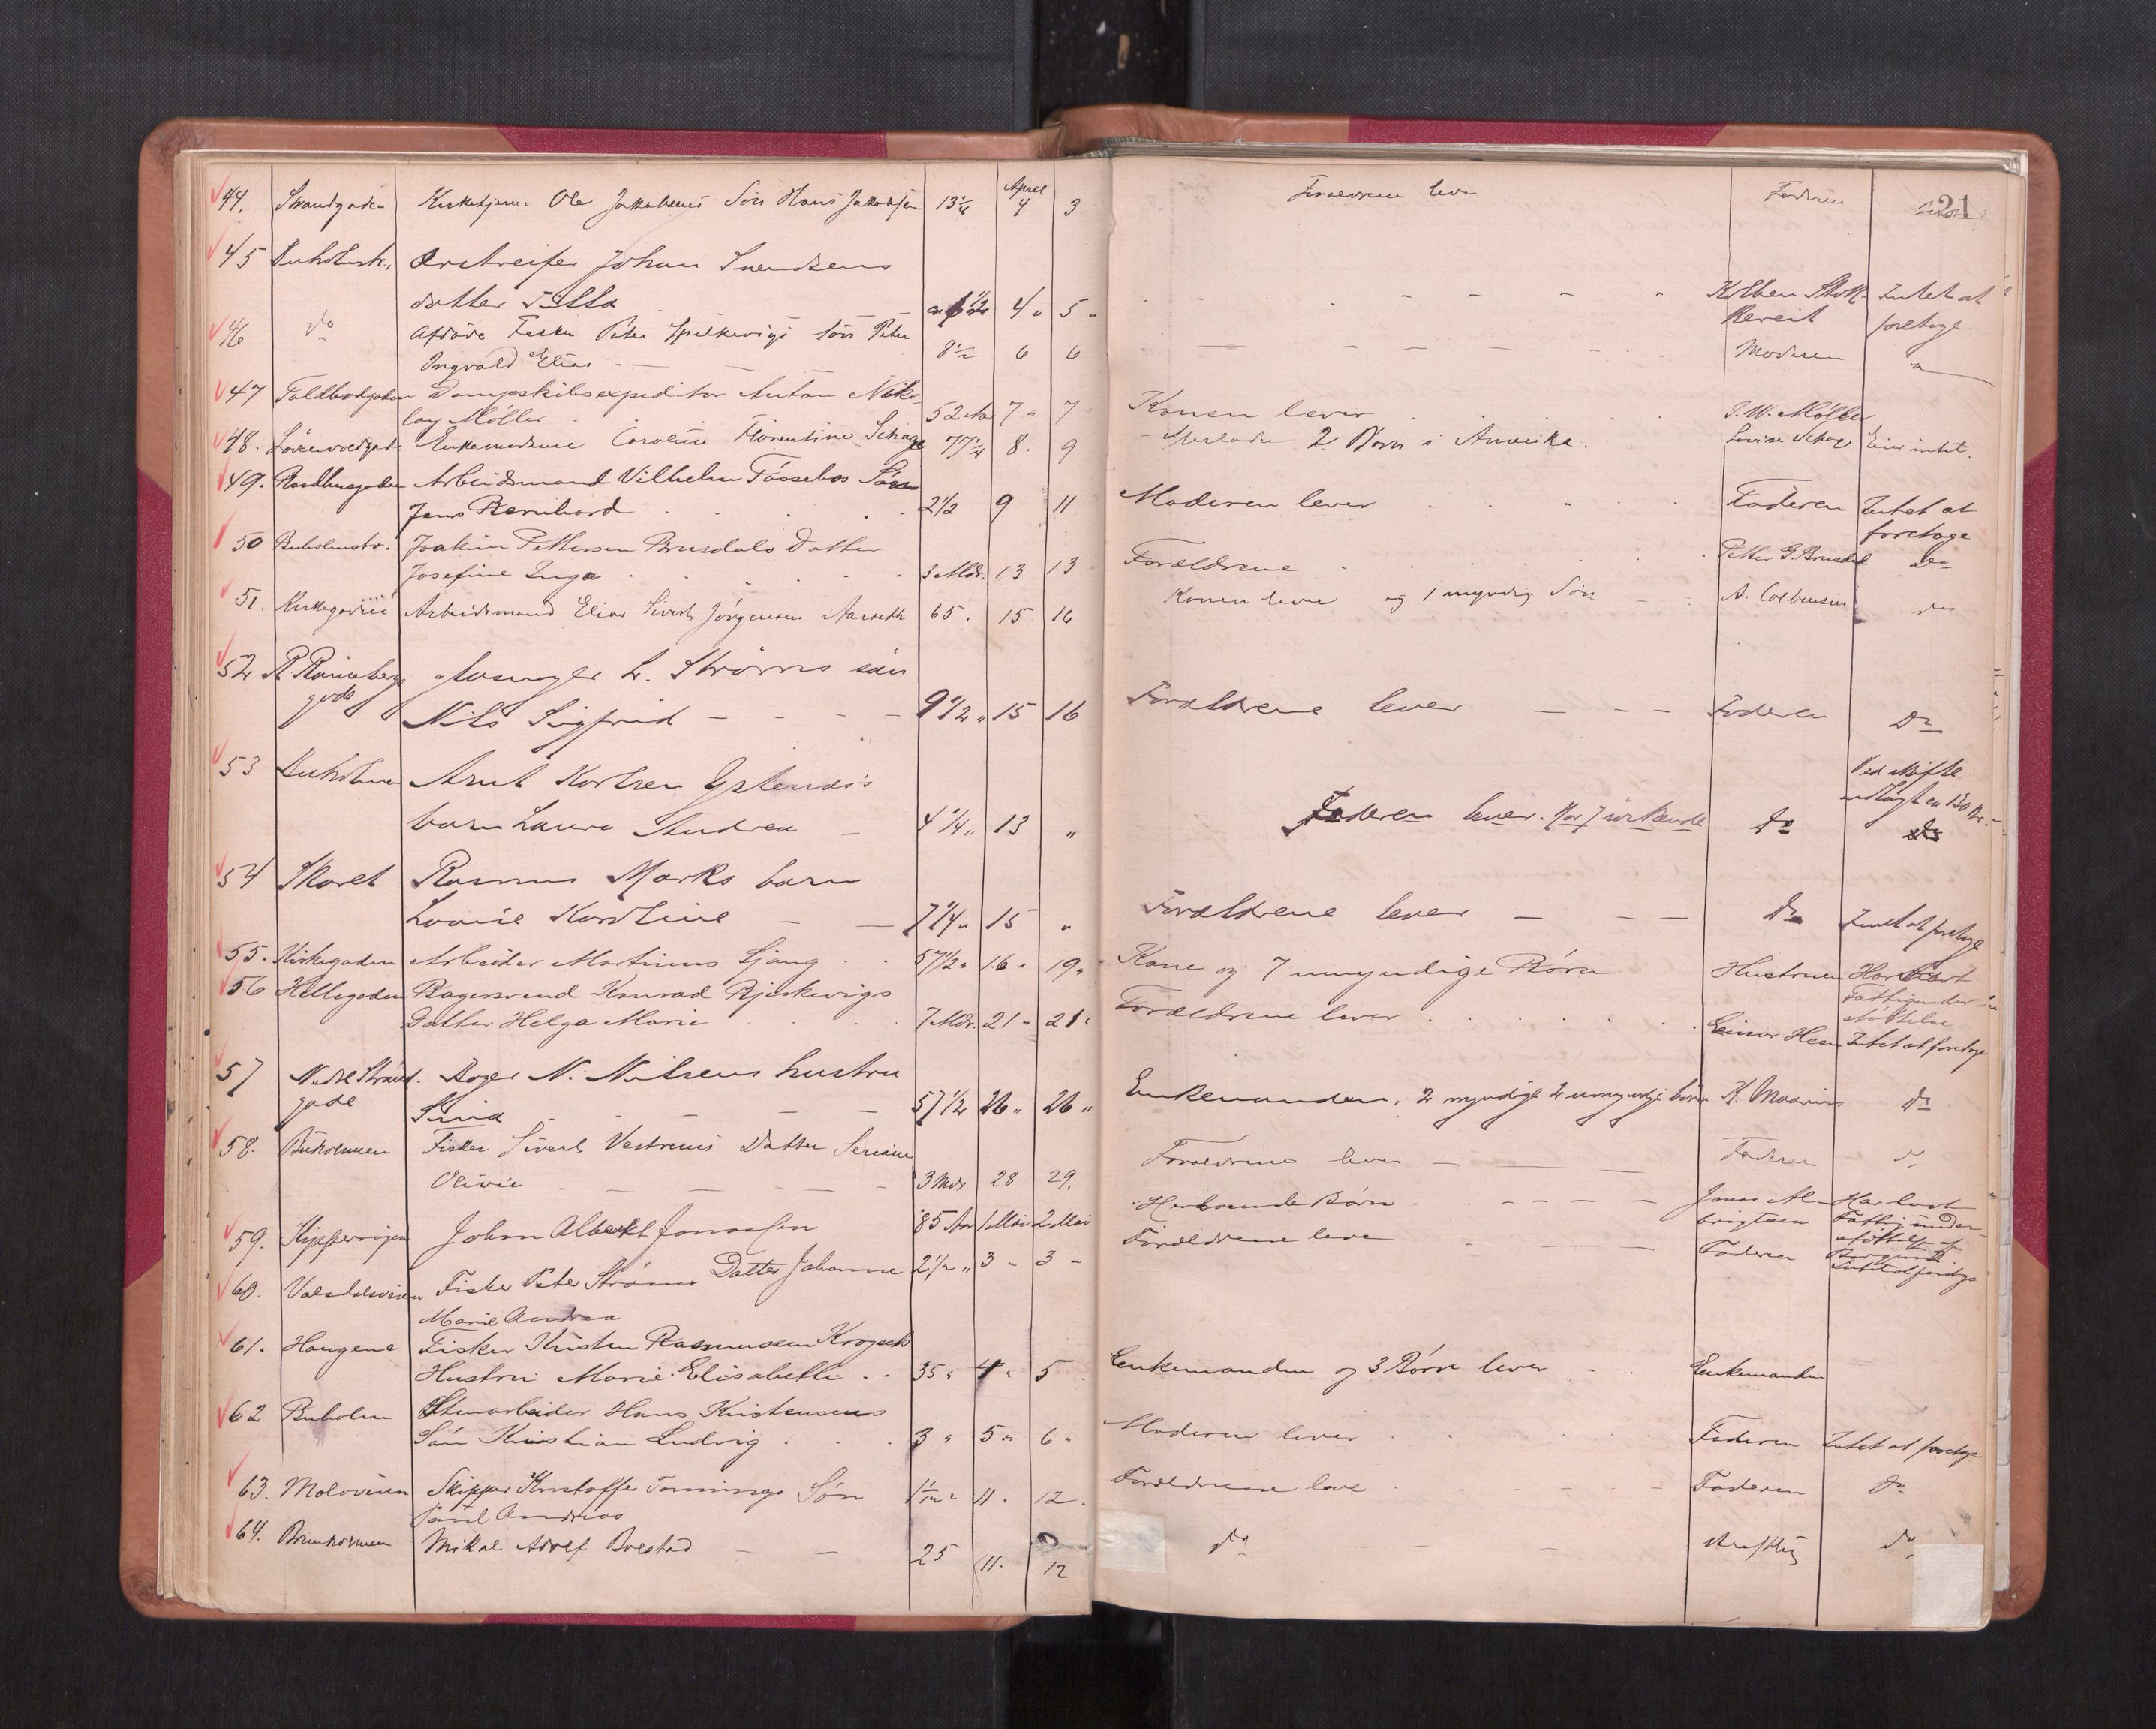 21
44. Strandgaden Kirketjener Ole Jakobsens Søn Hans Jakobsen 13 1/4 April 4 3. Forældrene lever Faderen
45 Buholmstr., Ørstreifer Johan Svendsens
datter Tilla 4 " 5 " Intet at
foretage
46 do Afdøde Fisker Peter Spilkevigs Søn Peter
Ingvald Elias 8 1/2 6 6 Moderen "
47 Toldbodgaden Dampskibsexpeditør Anton Niko-
lay Møller 52 Aar 7 " 7 Konen lever J. W. Møller
48. Løvenvoldgade Enkemadame Caroline Florentine Schage 77 1/4 8. 9 Efterlader 2 Børn i Amerika. Lovise Schage Eier intet.
49. Raadhusgaden Arbeidsmand Vilhelm Tøssebos Søn
Jens Bernhard 2 1/2 9 11 Moderen lever Faderen Intet at
foretage
50 Buholmstr. Joakim Pettersen Brusdals Datter
Josefine Inga 3 Mdr. 13 13 Forældrene Petter G. Brusdal do
51. Kirkegaden Arbeidsmand Elias Sivert Jørgensen Aarseth 65. 15 16 Konen lever og 1 myndig Søn A. Colbensen do
52 R Rønneberg
gade L. Strøms søn
Nils Sigfrid 9 1/2 " 15 16 Forældrene lever Faderen Do
53 Buholmen Arnt Karlsen Ystenes's
barn Laura Andrea 4 1/4 " 13 " Faderen lever. Do
Ved skifte
udlagt ca 130 Kr.
54 Skaret Rasmus Marks barn
Lovise Karoline 7 1/4 " 15 " Forældrene lever Do Intet at foretage
55. Kirkegaden Arbeider Martinus Gjang 57 1/2 " 16 " 19 " Kone og 7 umyndige Børn Hustruen Har havt
Fattigunder-
støttelse
56 Hellegaden Bagersvend Konrad Bjørkevigs
Datter Helga Marie 7 Mdr. 21 " 21 " Forældrene lever Einar Heen Intet at foretage
57 Nedre Strand-
gade Bager N. Nilsens hustru
Sina 57 1/2 26 " 26 " Enkemanden, 2 myndige 2 umyndige børn Do
58. Buholmen Fisker Sivert Vestrems Datter Seriane
Olivie 3 Mdr 28 29. Forældrene lever Faderen do
59. Kipervigen Johan Albert Jonassen 85 Aar 1 Mai 2 Mai Børn Jonas Al-
brigtsen Har havt
Fattigunder-
støttelse af
Borgund.
60. Volsdalsveien Fisker Peter Strøms Datter Johanne 2 1/2 " 3 " 3 " Forældrene lever Faderen Intet at foretage
Marie Andrea
61. Haugene Fisker Kristen Rasmussen Krogseths
Hustru Marie Elisabeth 35 " 4 " 5 Enkemanden og 3 Børn lever Enkemanden
62 Buholm Stenarbeider Hans Kristensens
Søn Kristian Ludvig 3 " 5 " 6 " Moderen lever Faderen Intet at foretage
63. Moloveien Skipper Kristoffer Tønnings Søn 11. 12. Forældrene leve Faderen do
Paul Andreas
64. Brunholmen Mikal Adolf Bolstad 25 11. 12 do do